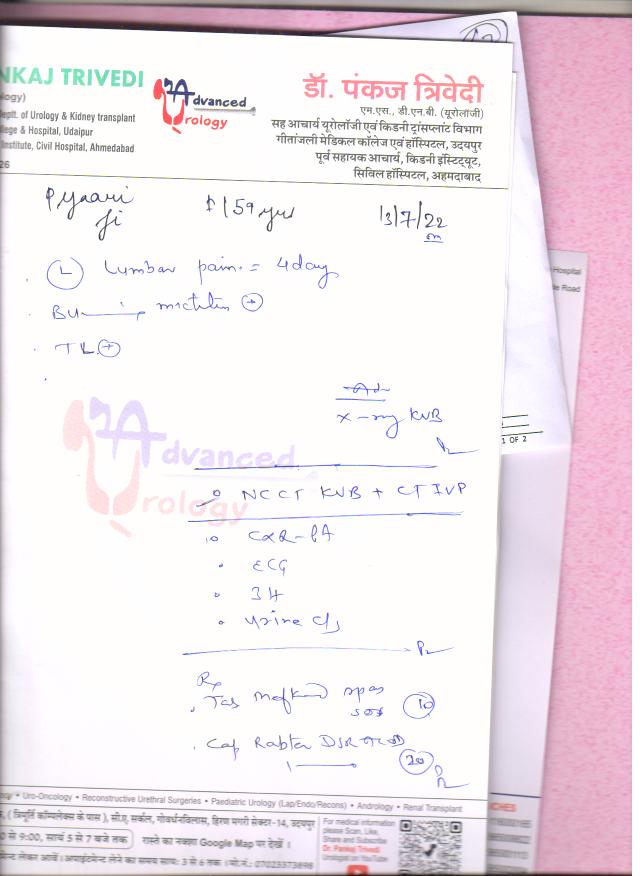 NKAJ TRIVEDI
ology)
Deptt. of Urology & Kidney transplant
llege & Hospital, Udaipur
Institute, Civil Hospital, Ahmedabad
26
Advanced
Urology
डॉ. पंकज त्रिवेदी
एम.एस., डी.एन.बी. (यूरोलॉजी)
सह आचार्य यूरोलॉजी एवं किडनी ट्रांसप्लांट विभाग
गीतांजली मेडिकल कॉलेज एवं हॉस्पिटल, उदयपुर
पूर्व सहायक आचार्य, किडनी इंस्टिट्यूट,
सिविल हॉस्पिटल, अहमदाबाद
Pyaari
Ji
59 yrs
13/7/22
Hospital
Road
L Lumbar pain = 4 day
micturition +
X-ray KUB
1 OF 2
Advanced
Urology
NCCT KUB + CT IVP
CXR-PA
ECG
Urine C/s
Rx
Tab spas
sos
10
Cap DSR
20
• Uro-Oncology • Reconstructive Urethral Surgeries • Paediatric Urology (Lap/Endo/Recons) • Andrology • Renal Transplant
( त्रिमूर्ति कॉम्पलेक्स के पास ), सी.ए. सर्कल, गोवर्धनविलास, हिरण मगरी सेक्टर-14, उदयपुर
से 9:00, सायं 5 से 7 बजे तक रास्ते का नक्शा Google Map पर देखें ।
लेकर आवें । अपाईंटमेन्ट लेने का समय सायं: 3 से 6 तक । मो.नं.: 07025373898
For medical information
please Scan, Like,
Share and Subscribe
Dr. Pankaj Trivedi
Urologist on YouTube